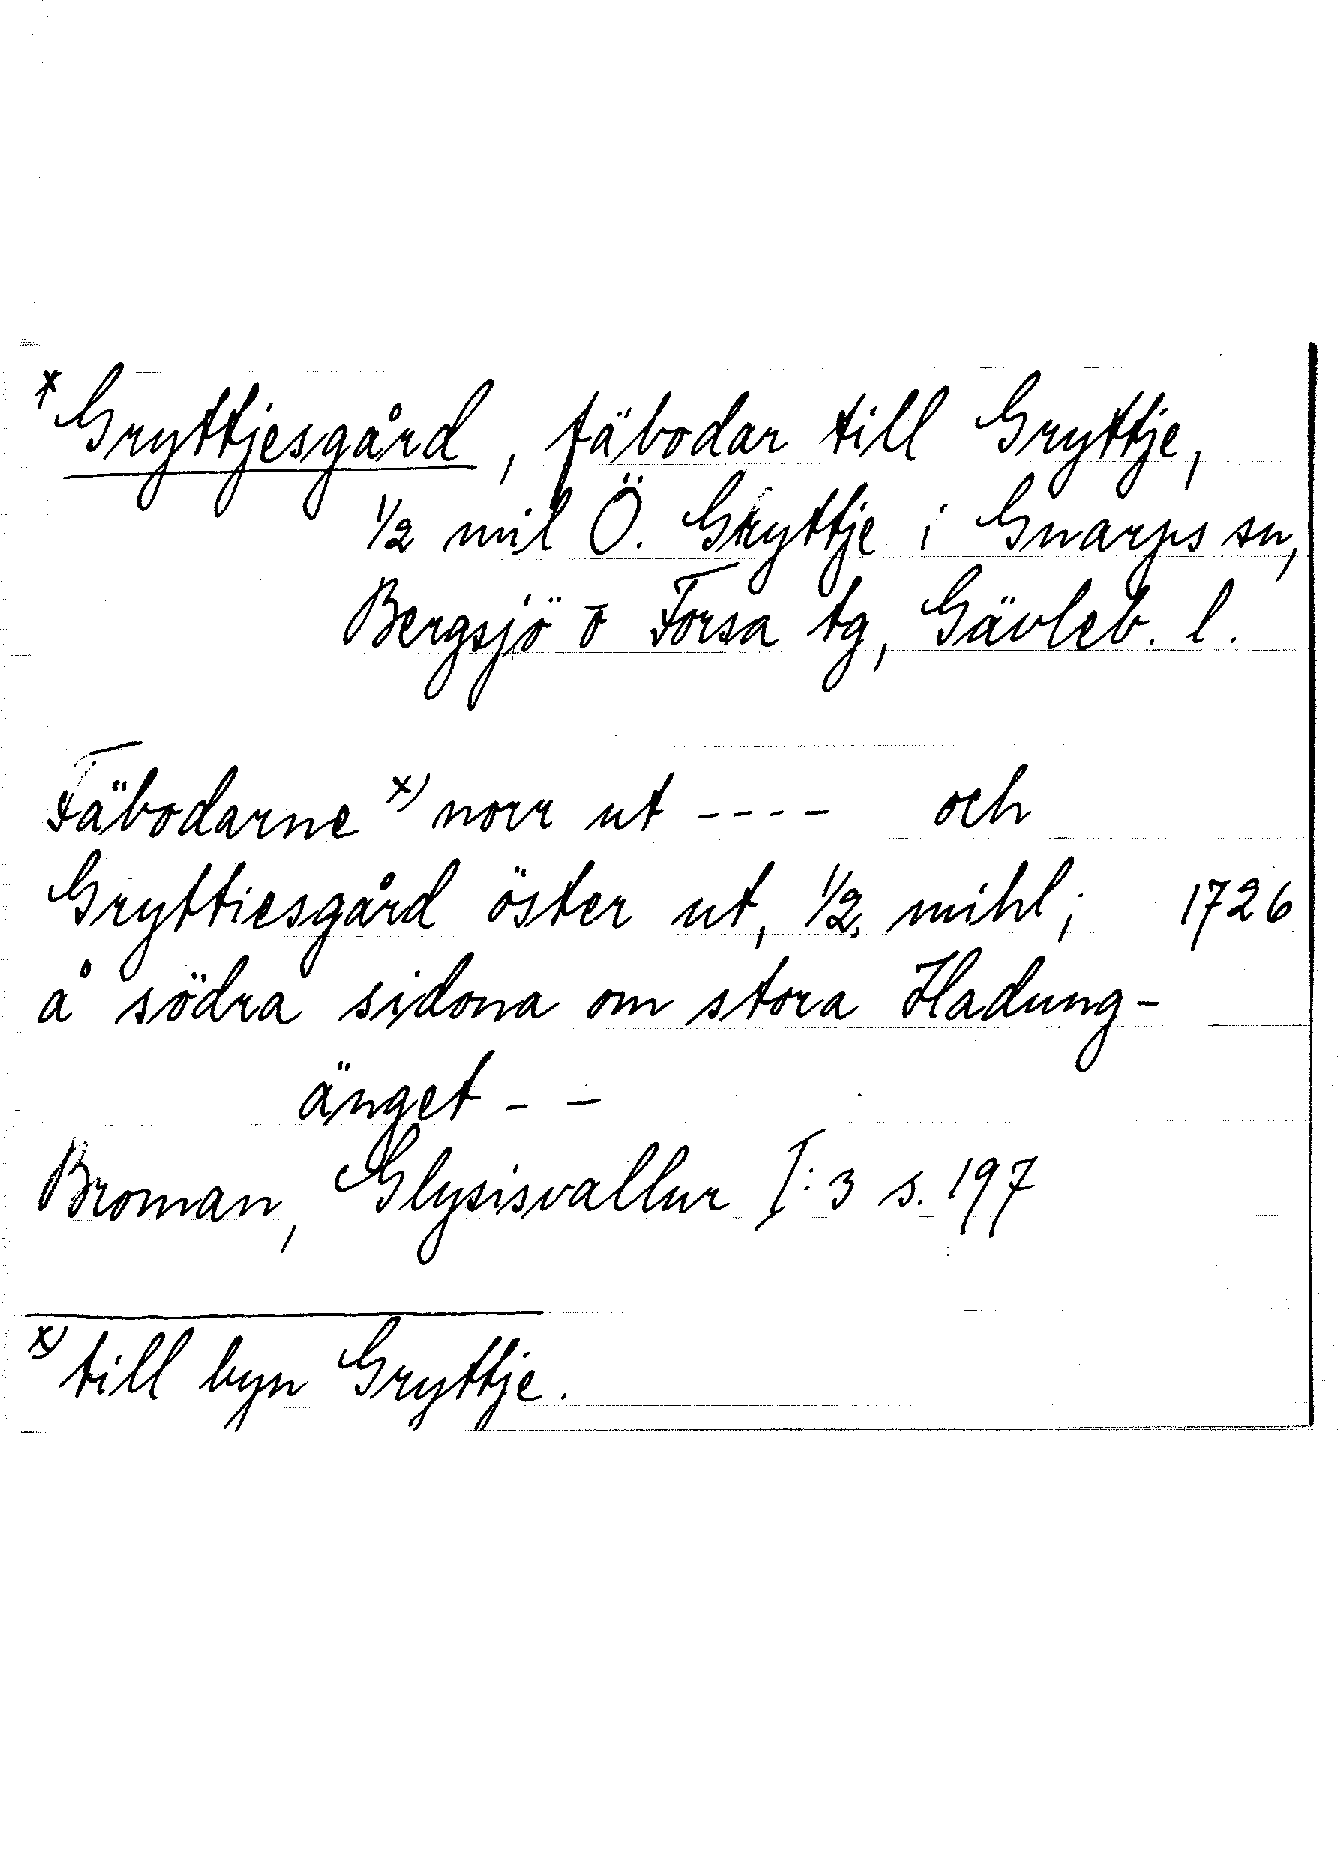 x Gryttjesgård, fäbodar till Gryttje,
1/2 mil Ö. Gryttje i Gnarps sn,
Bergsjö o Forsa tg, Gävleb. l.
Fäbodarne x) norr ut ---- och
Gryttiesgård öster ut, 1/2. mihl; 1726
å södra sidona om stora Hadung-
änget - -
Broman, Glysisvallur I:3 s. 197
x) till byn Gryttje.